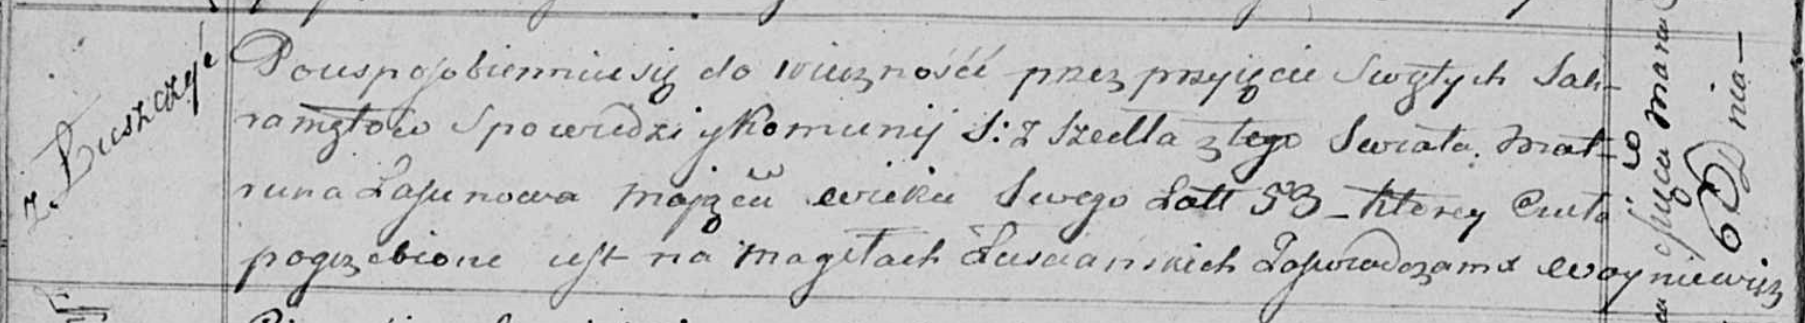 z. Łuszczyć
Pousposobienniusię do wieczności przez przyięcie Swiętych Sak-
ramętow Spowiedzi y Komunij S: Z Szedła z tego Swiata Mat-
runa Łasunowa Mającu wieku Swego Latt 53 – Ktorey Ciało
pogrzebione iest na Magiłach Łusciańskich Zaswiadczam X Woyniewicz
6 Dnia –